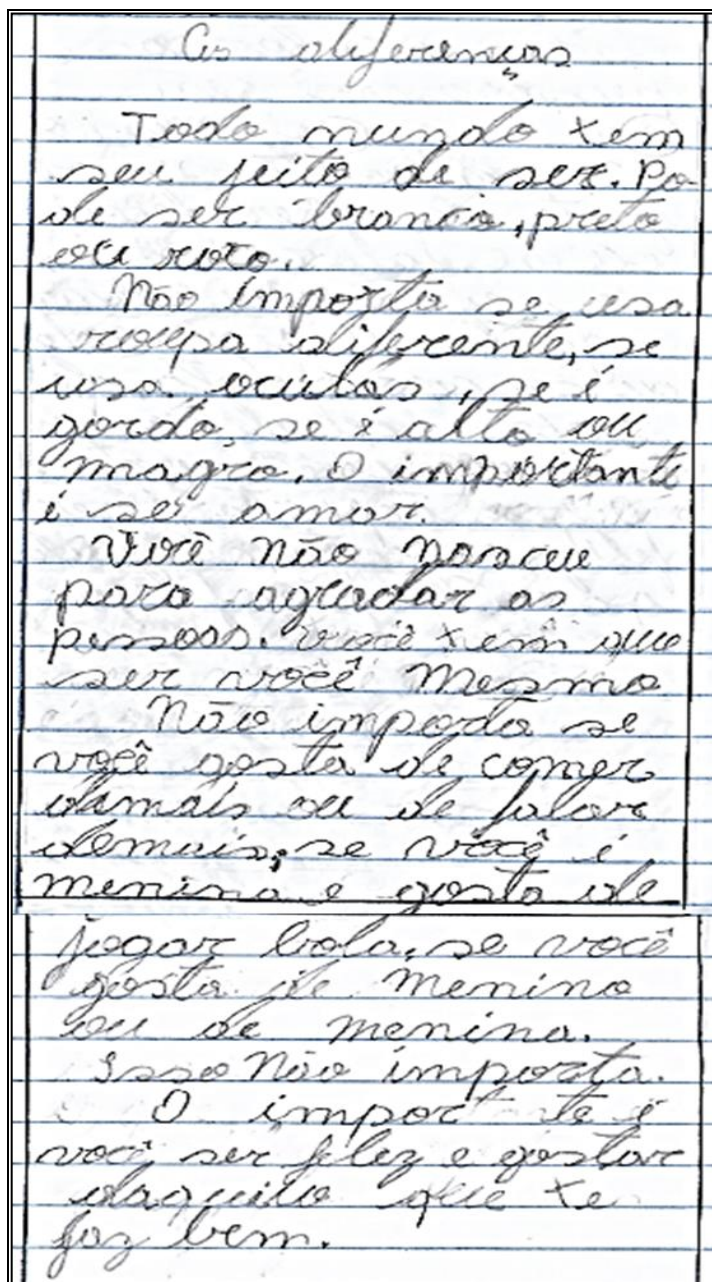 As diferenças
Todo mundo tem
seu jeito de ser. Po
de ser branco, preto
ou roxo.
Não importa se usa
roupa diferente, se
usa oculos, se é
gordo, se é alto ou
magro. O importante
é ser amor.
Você não nasceu
para agradar as
pessoas. você tem que
ser você mesmo
Não importa se
você gosta de comer
demais ou de falar
demais, se você é
menina e gosta de
jogar bola, se você
gosta de menino
ou de menina.
Isso Não importa.
O importante é
você ser feliz e gostar
daquilo que te
faz bem.